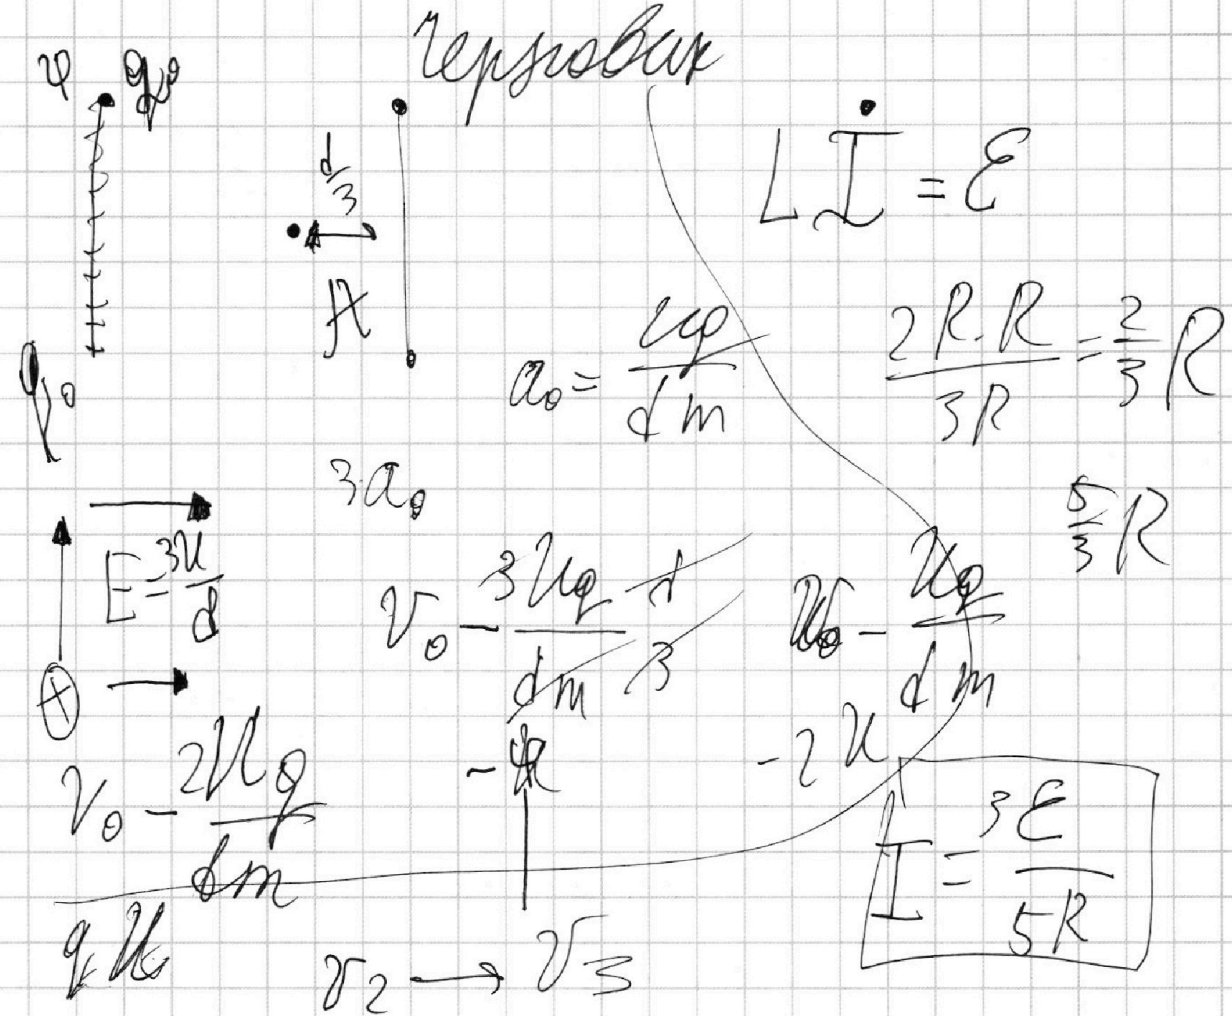 Черновик
φ q₀
d/3
A
L İ = ℰ
a₀ = Uq/dm
2R·R/3R = 2/3 R
q₀
3a₀
5/3 R
E = 3U/d
V₀ - 3Uq/dm d/3
V₀ - Uq/dm
V₀ - 2Uq/dm
-2U
I = 3ℰ/5R
qU
V₂ → V₃